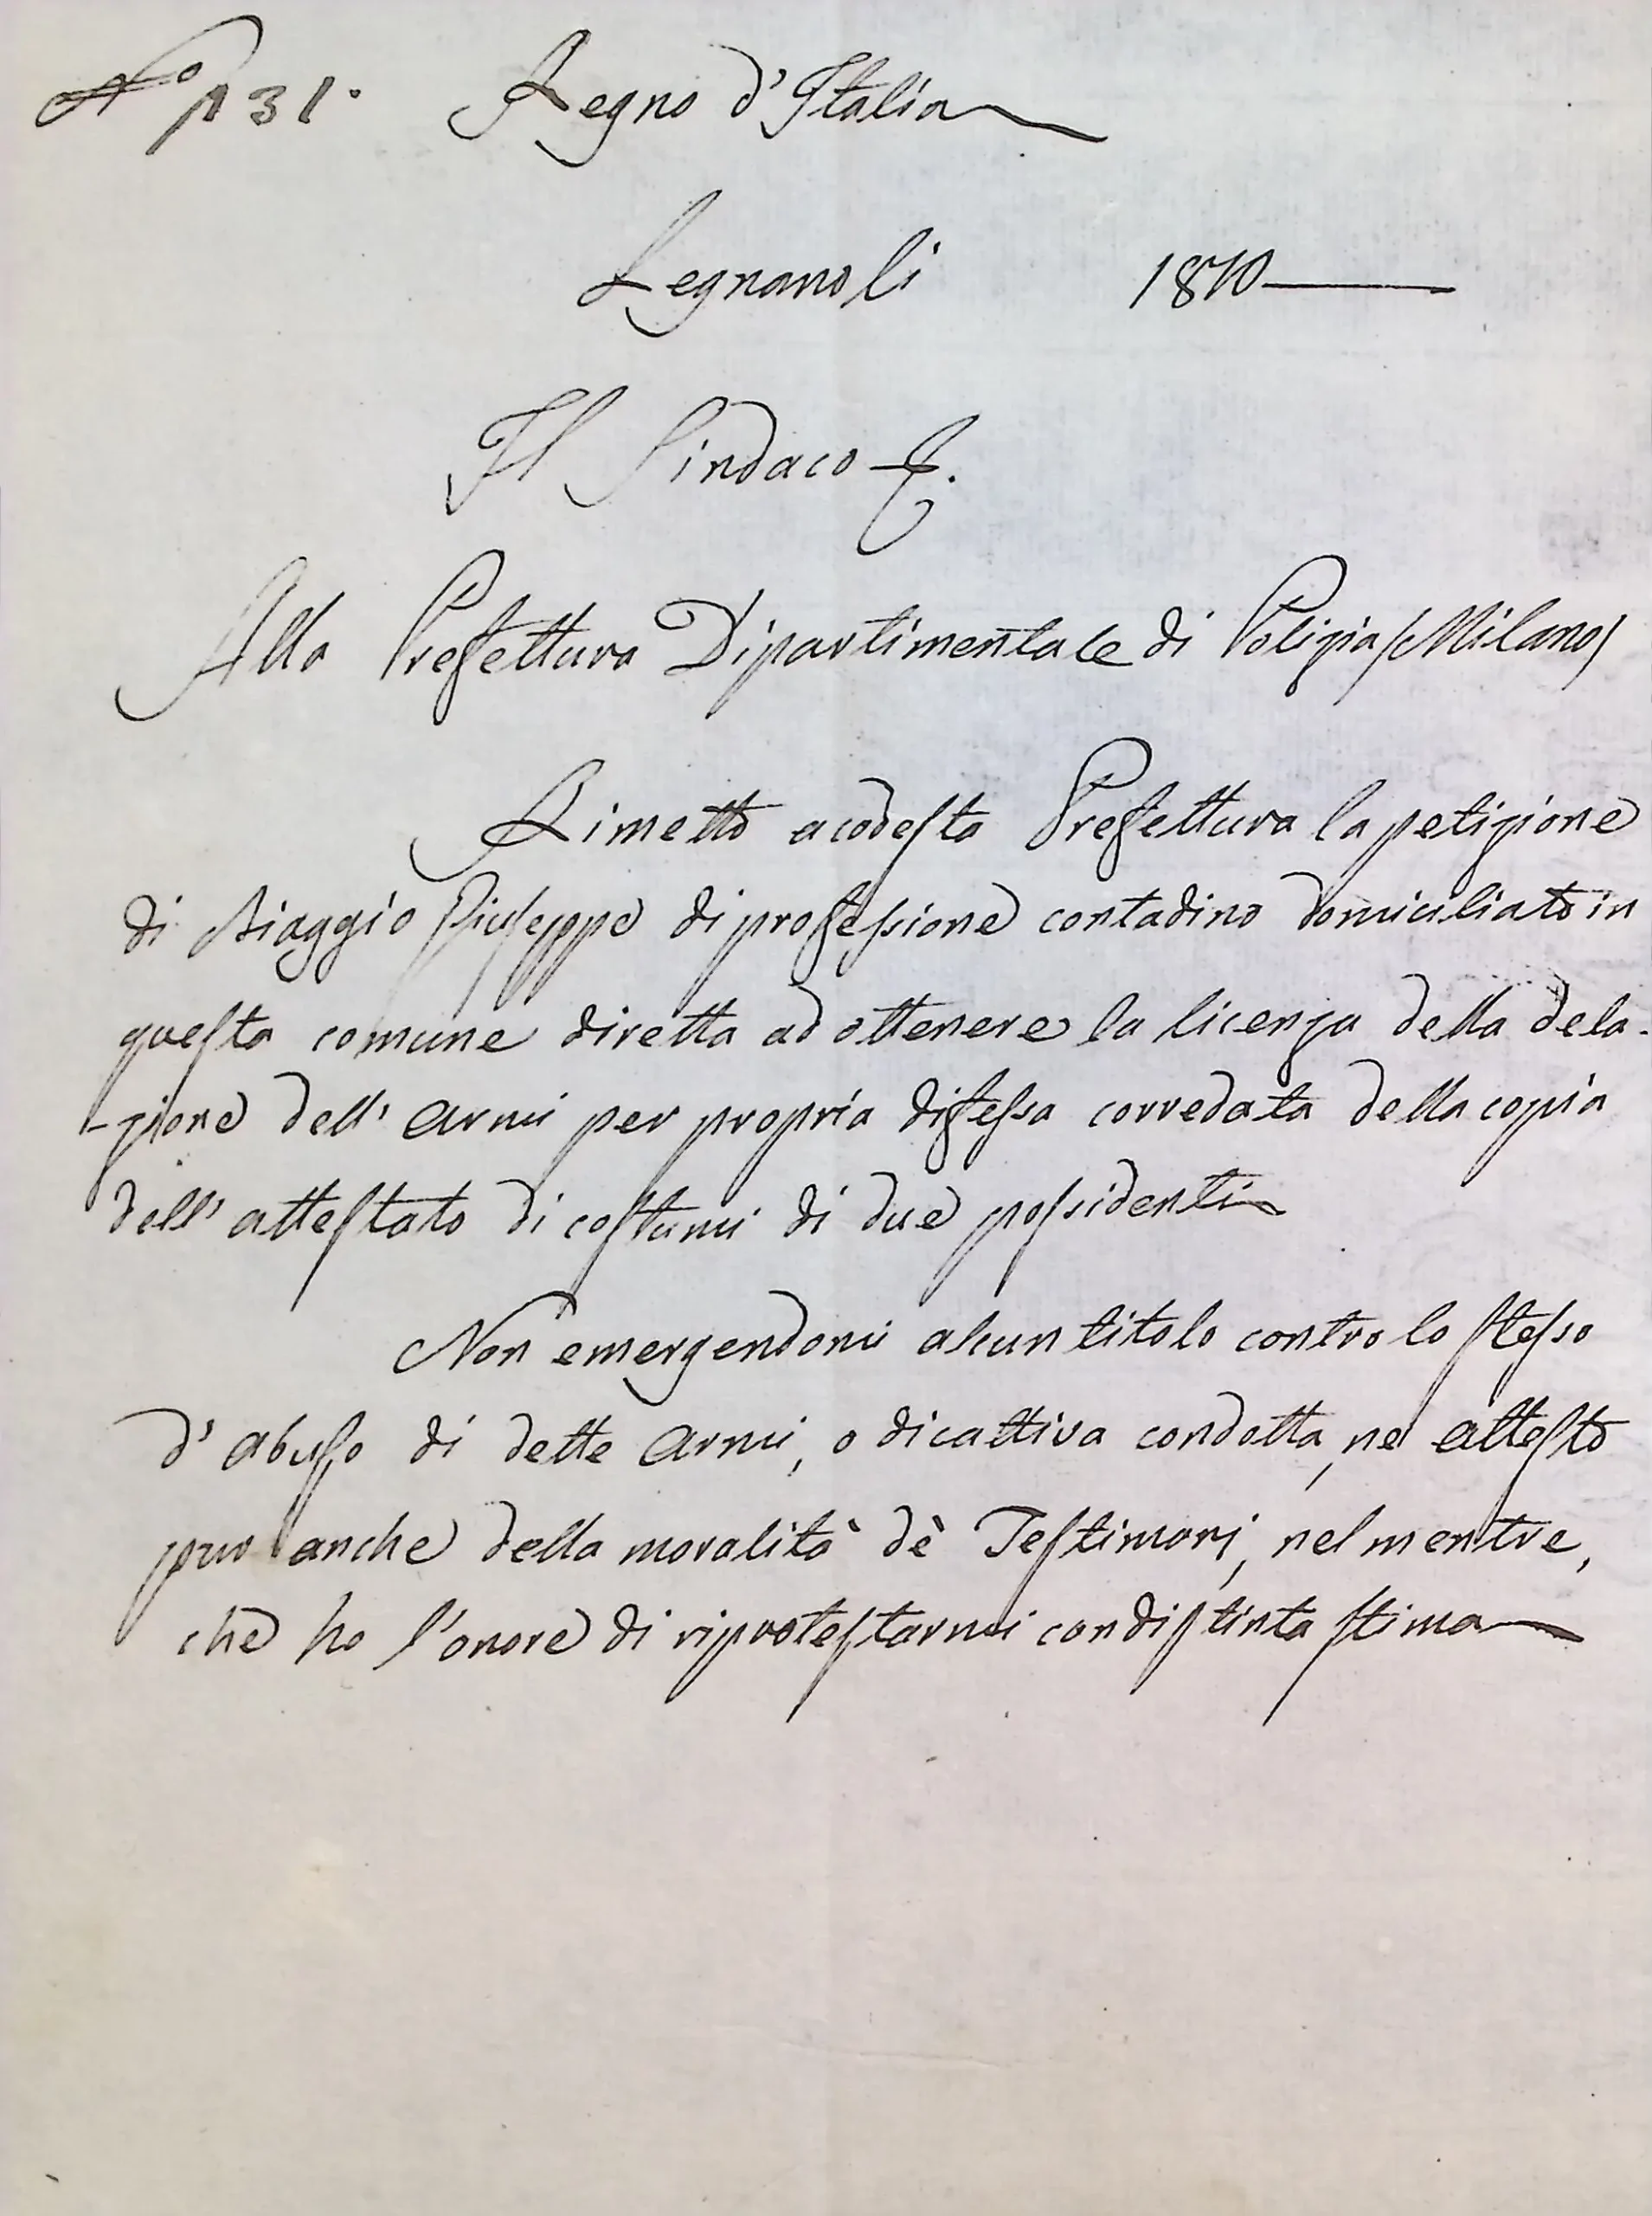 N.o 131. Regno d'Italia
Legnano li 1810
Il Sindaco
Alla Prefettura Dipartimentale di Polizia /Milano/
Rimetto a codesta Prefettura la petizione
di Biaggio Giuseppe di professione contadino domiciliato in
questa comune diretta ad ottenere la licenza della dela-
-zione dell' Armi per propria difessa corredata della copia
dell' attestato di costumi di due possidenti
Non emergendomi alcun titolo contro lo stesso
d' abuso di dette Armi, o di cattiva condotta, ne attesto
pur anche della moralità dè Testimonj, nel mentre,
che ho l'onore di riprotestarmi con distinta stima